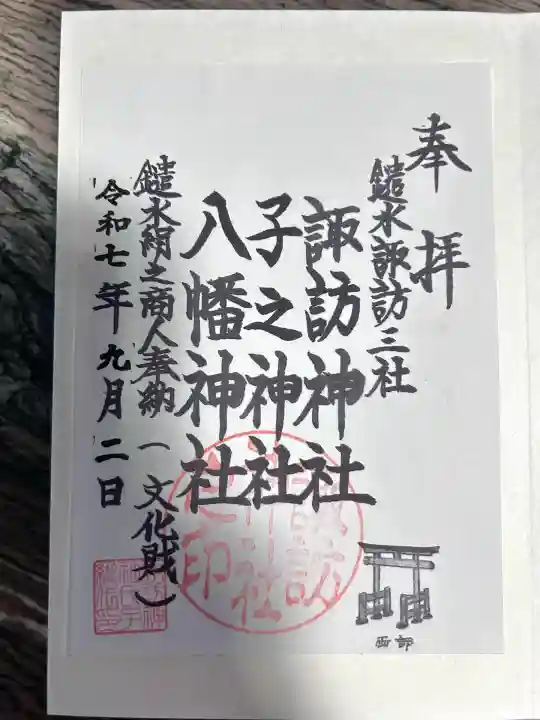 奉拝
鑓水諏訪三社
諏訪神社
子之神社
八幡神社
鑓水絹之商人奉納(文化財)
令和七年九月二日
諏訪
神社
之印
西部